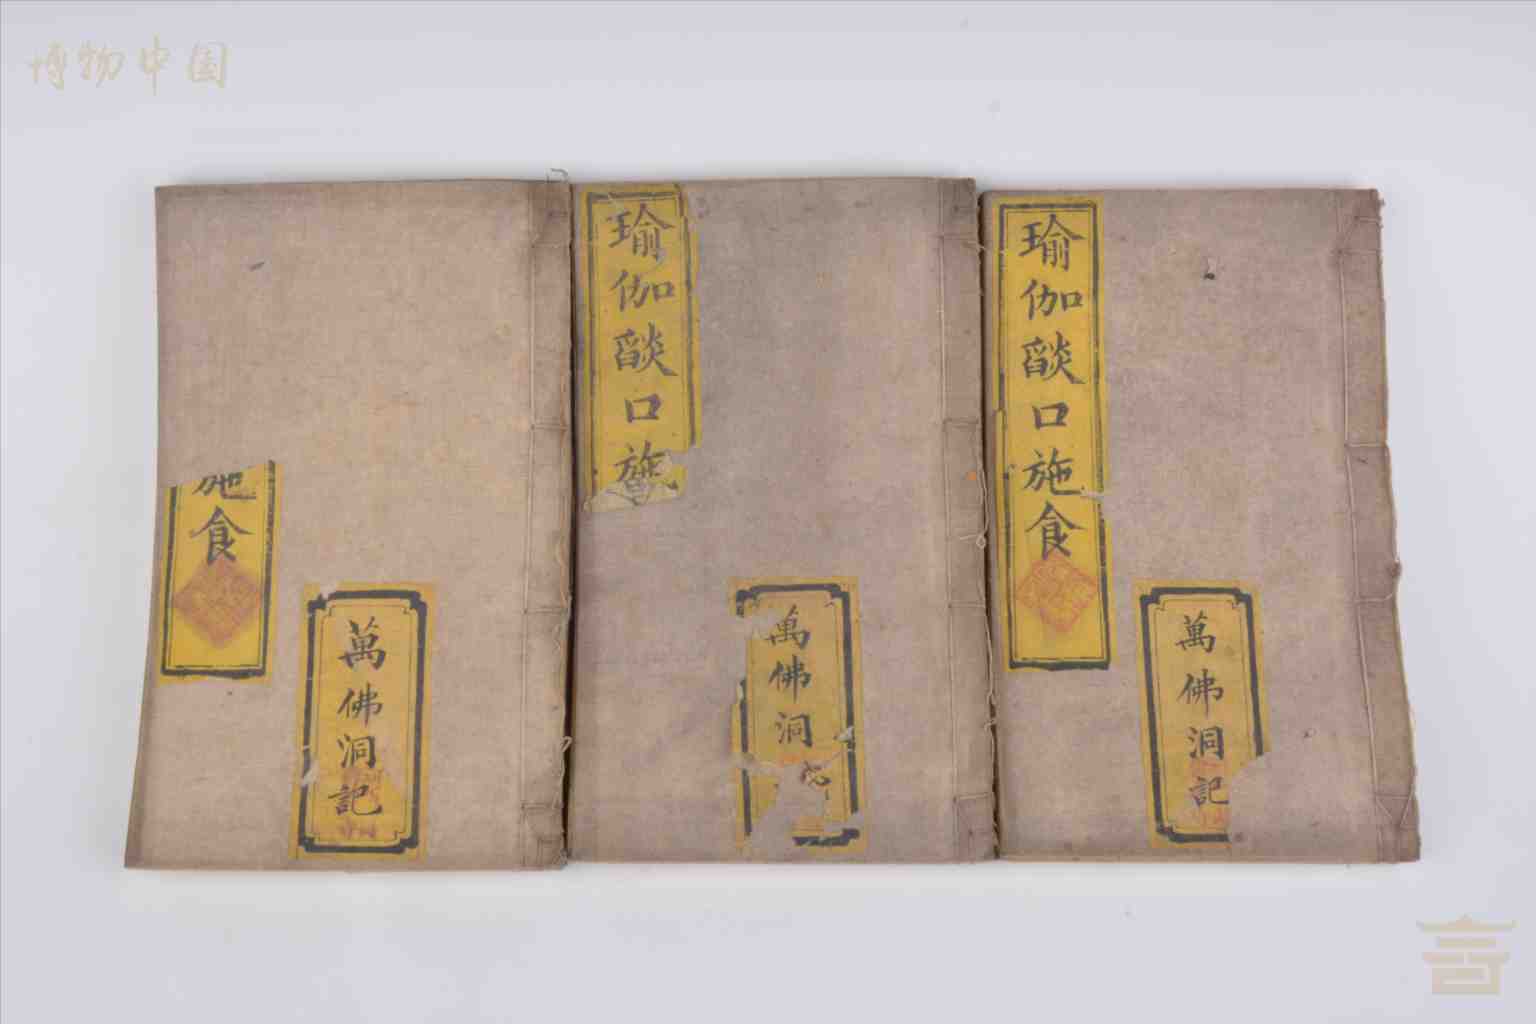 博物中国
施食
萬佛洞記
瑜伽燄口施
萬佛洞
瑜伽燄口施食
萬佛洞記